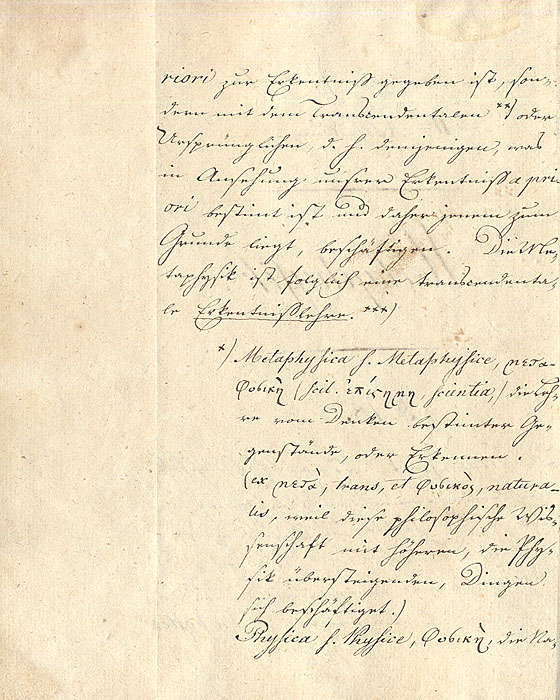 riori zur Erkentniß gegeben ist, son-
dern mit dem Transcendentalen **) oder
Ursprünglichen, d. h. demjenigen, was
in Ansehung unsrer Erkentniß a pri-
ori bestimt ist und daher jenem zum
Grunde liegt, beschäftigen. Die Me-
taphysik ist folglich eine transcendenta-
le Erkentnißlehre. ***)
*) Metaphysica s. Metaphysice, μετα-
φυσικὴ (scil. ἐπίςημη, scientia,) die Leh-
re vom Denken bestimter Ge-
genstände, oder Erkennen.
(ex μετὰ, trans, et φυσικὸς, natura-
lis, weil diese philosophische Wis-
senschaft mit höheren, die Phy-
sik übersteigenden, Dingen
sich beschäftiget.)
Physica s. Physice, φυσικὴ, die Na-